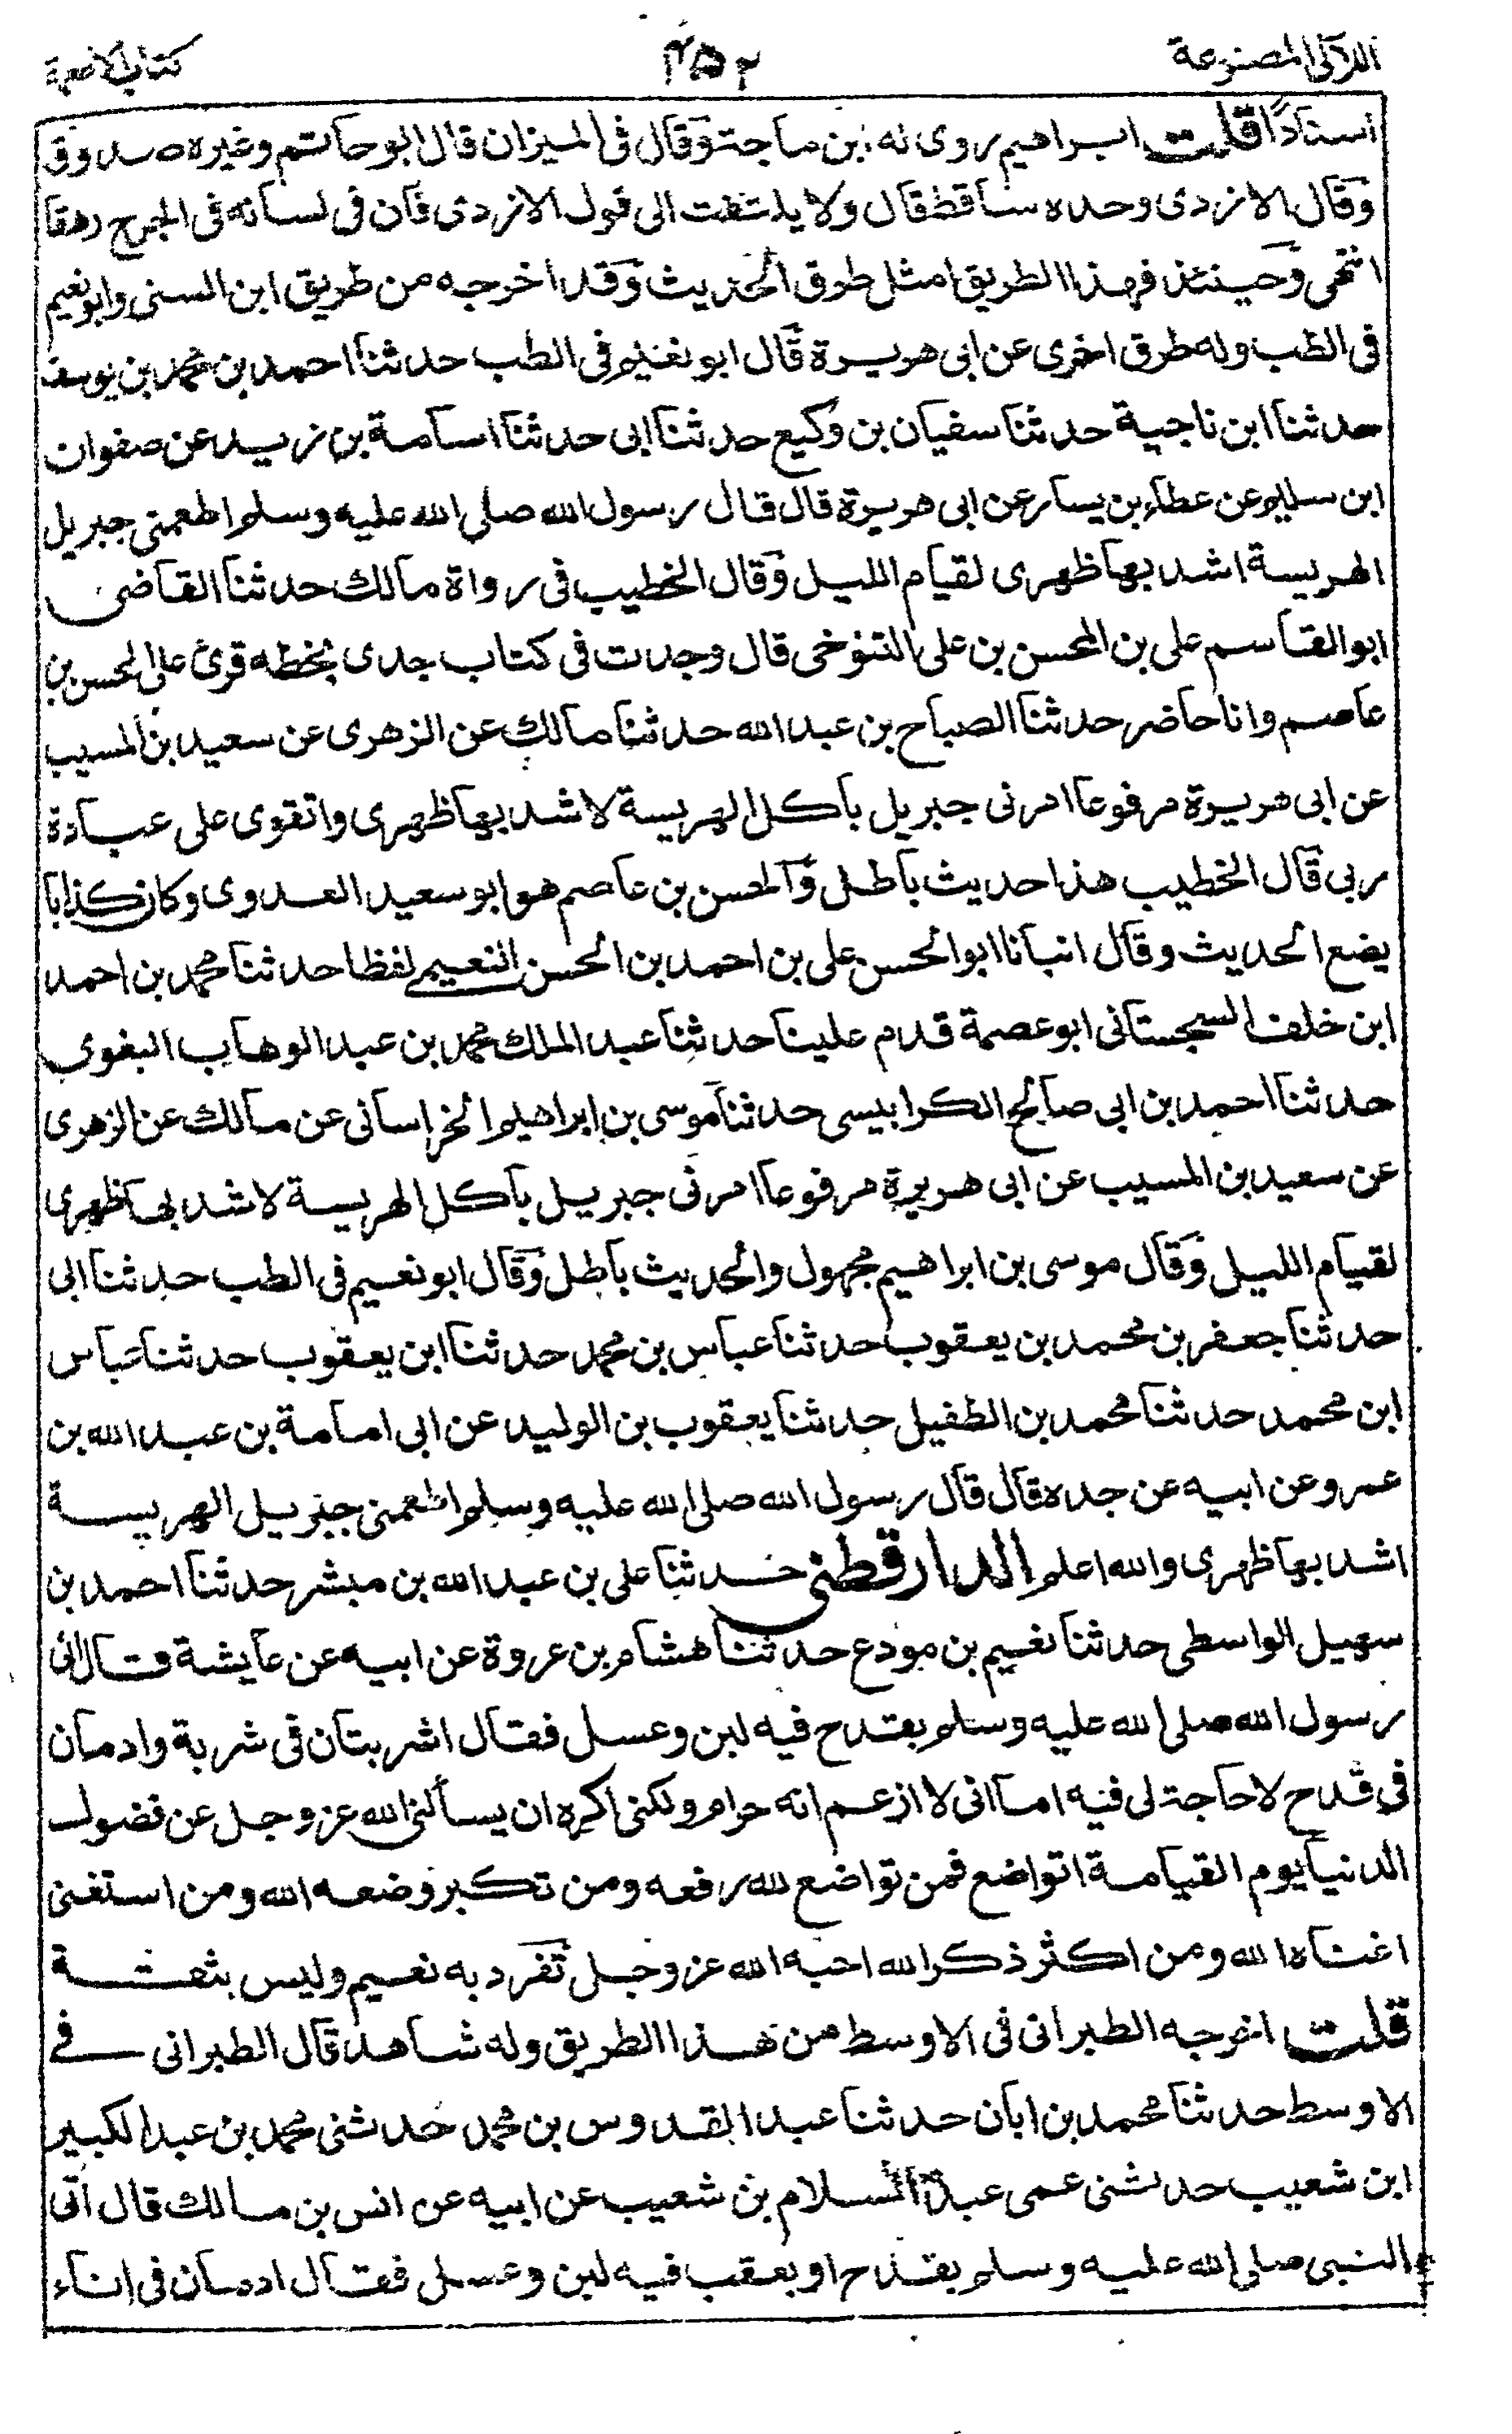 اللآلى المصنوعة
٤٥٢
كتاب الاطعمة
اسنادًا قلت ابراهيم روى له ابن ماجة وقال فى الميزان قال ابو حاتم وغيره صدوق
وقال الازدى وحده ساقط قال ولا يلتفت الى قول الازدى فان فى لسانه فى الجرح رهقا
انتهى وحينئذ فهذا الطريق امثل طرق الحديث وقد اخرجه من طريق ابن السنى وابو نعيم
فى الطب وله طرق اخرى عن ابى هريرة قال ابو نعيم فى الطب حدثنا احمد بن محمد بن يوسف
حدثنا ابن ناجية حدثنا سفيان بن وكيع حدثنا ابى حدثنا اسامة بن زيد عن صفوان
ابن سليم عن عطاء بن يسار عن ابى هريرة قال قال رسول الله صلى الله عليه وسلم اطعمنى جبريل
الهريسة اشد بها ظهرى لقيام الليل وقال الخطيب فى رواة مالك حدثنا القاضى
ابو القاسم على بن المحسن بن على التنوخى قال وجدت فى كتاب جدى بخطه قرئ على الحسن بن
عاصم وانا حاضر حدثنا الصباح بن عبد الله حدثنا مالك عن الزهرى عن سعيد بن المسيب
عن ابى هريرة مرفوعا امرنى جبريل باكل الهريسة لاشد بها ظهرى واتقوى على عبادة
ربى قال الخطيب هذا حديث باطل والحسن بن عاصم هو ابو سعيد العدوى وكان كذابا
يضع الحديث وقال انبانا ابو الحسن على بن احمد بن الحسن النعيمى لفظا حدثنا محمد بن احمد
ابن خلف السجستانى ابو عصمة قدم علينا حدثنا عبد الملك محمد بن عبد الوهاب البغوى
حدثنا احمد بن ابى صالح الكرابيسى حدثنا موسى بن ابراهيم الخراسانى عن مالك عن الزهرى
عن سعيد بن المسيب عن ابى هريرة مرفوعا امرنى جبريل باكل الهريسة لاشد بها ظهرى
لقيام الليل وقال موسى بن ابراهيم مجهول والحديث باطل وقال ابو نعيم فى الطب حدثنا ابى
حدثنا جعفر بن محمد بن يعقوب حدثنا عباس بن محمد حدثنا ابن يعقوب حدثنا عباس
ابن محمد حدثنا محمد بن الطفيل حدثنا يعقوب بن الوليد عن ابى امامة بن عبد الله بن
عمرو عن ابيه عن جده قال قال رسول الله صلى الله عليه وسلم اطعمنى جبريل الهريسة
اشد بها ظهرى والله اعلم الدارقطنى حدثنا على بن عبد الله بن مبشر حدثنا احمد بن
سهيل الواسطى حدثنا نعيم بن مودع حدثنا هشام بن عروة عن ابيه عن عايشة قال اتى
رسول الله صلى الله عليه وسلم بقدح فيه لبن وعسل فقال اشربتان فى شربة وادمان
فى قدح لا حاجة لى فيه اما انى لا ازعم انه حرام ولكنى اكره ان يسألنى الله عز وجل عن فضول
الدنيا يوم القيامة اتواضع فمن تواضع لله رفعه ومن تكبر وضعه الله ومن استغنى
اغناه الله ومن اكثر ذكر الله احبه الله عز وجل تفرد به نعيم وليس بثقة
قلت اخرجه الطبرانى فى الاوسط من هذا الطريق وله شاهد قال الطبرانى فى
الاوسط حدثنا محمد بن ابان حدثنا عبد القدوس بن محمد حدثنى محمد بن عبد الكبير
ابن شعيب حدثنى عمى عبد السلام بن شعيب عن ابيه عن انس بن مالك قال اتى
النبى صلى الله عليه وسلم بقدح او بعقب فيه لبن وعسل فقال ادمان فى اناء